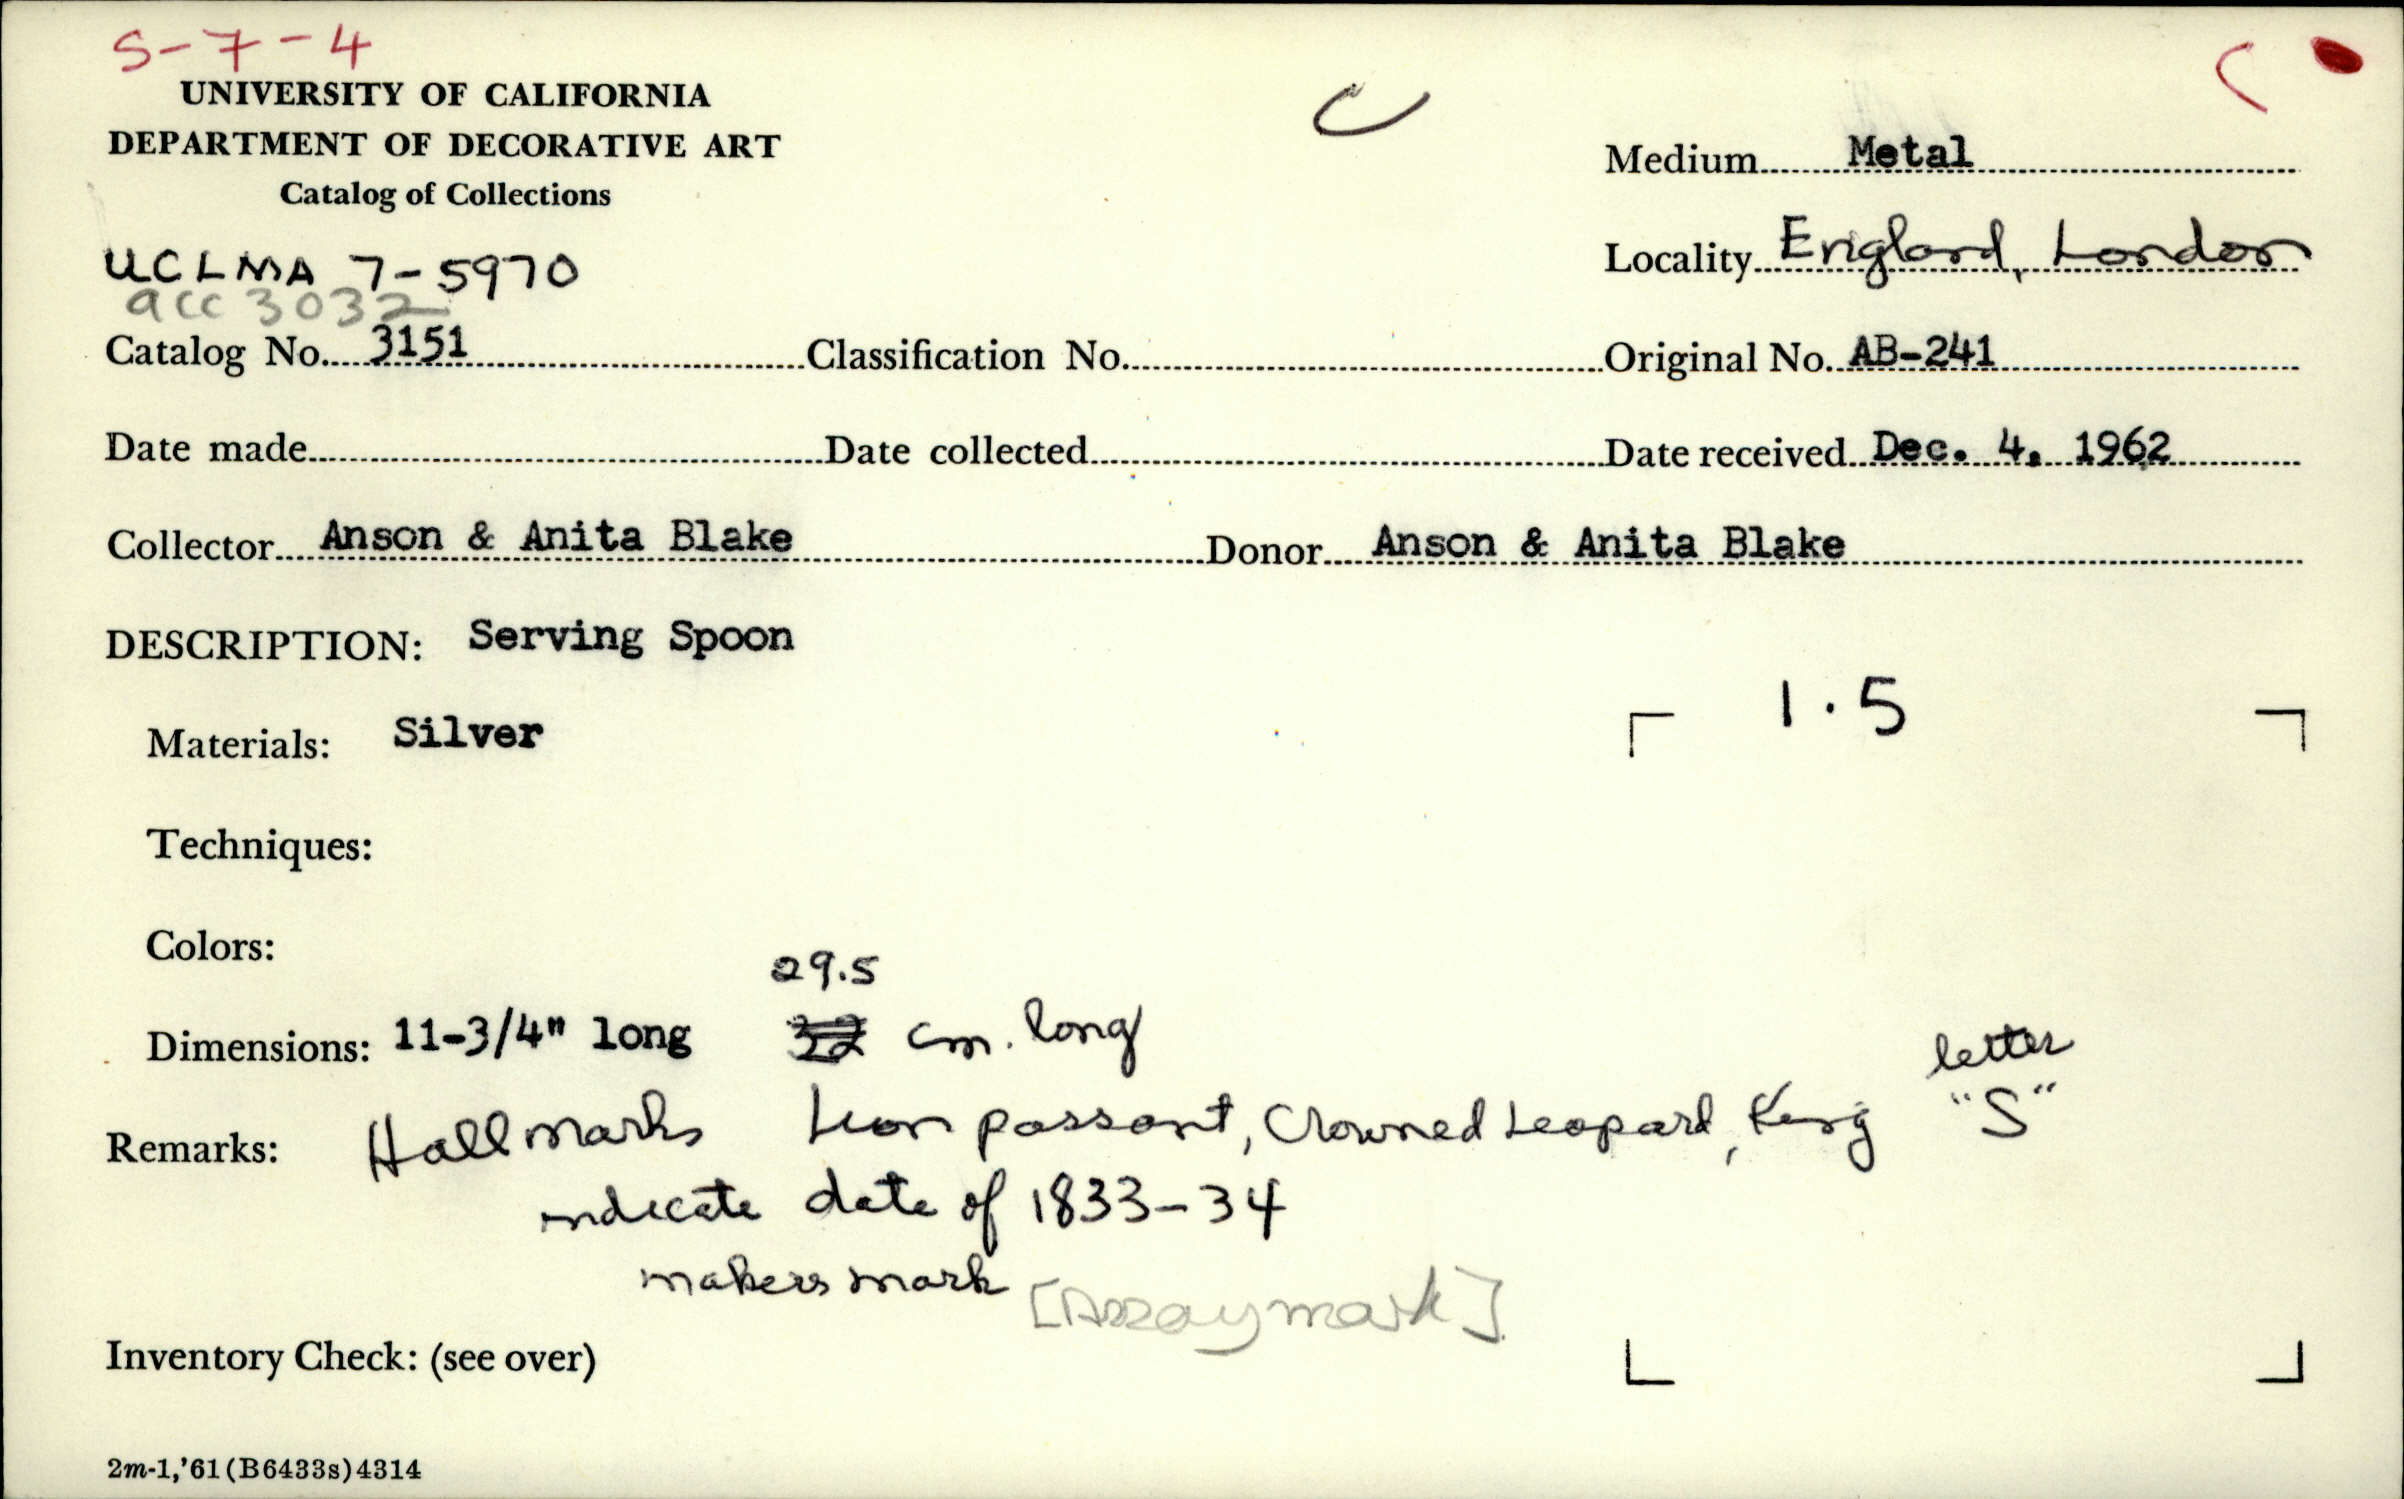 S-7-4
UNIVERSITY OF CALIFORNIA
DEPARTMENT OF DECORATIVE ART
Catalog of Collections
Medium Metal
Locality England, London
UCLMA 7-5970
acc 3032
Catalog No. 3151 Classification No. Original No. AB-241
Date made Date collected Date received Dec. 4, 1962
Collector Anson & Anita Blake Donor Anson & Anita Blake
DESCRIPTION: Serving Spoon
1.5
Materials: Silver
Techniques:
Colors:
29.5
Dimensions: 11-3/4" long 32 cm. long
letter
Remarks: Hallmarks Lion passant, Crowned Leopard, King "S"
indicate date of 1833-34
makers mark [Assay mark]
Inventory Check: (see over)
2m-1,'61(B6433s)4314